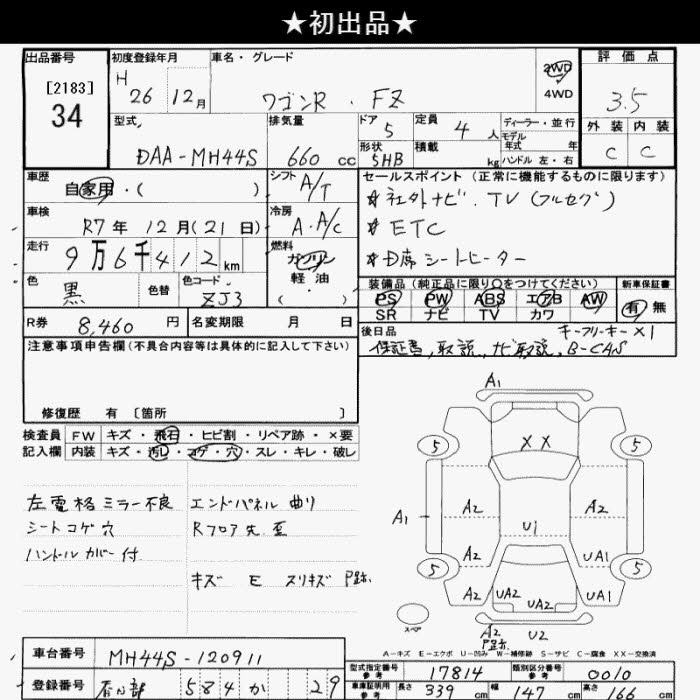 ★初出品★
出品番号
[2183]
34
初度登録年月
H 26年 12月
車名・グレード
ワゴンR . FZ
2WD
4WD
評価点
3.5
外装 内装
C C
型式
DAA-MH44S
排気量
660 cc
ドア
5
形状
5HB
定員
4 人
積載
kg
ディーラー・並行
モデル
年式 年
ハンドル 左・右
車歴
自家用・( )
シフト
A/T
車検
R7年 12月(21日)
冷房
A・A/C
走行
9万6千412km
燃料
ガソリン
軽油
( )
色
黒
色替
色コード
ZJ3
R券
8,460 円
名変期限 月 日
セールスポイント(正常に機能するものに限ります)
☆社外ナビ.TV(フルセグ)
☆ETC
☆D席シートヒーター
装備品(純正品に限り○をつけてください)
PS PW ABS エアB AW
SR ナビ TV カワ
新車保証書
有 無
後日品
キーフリーキー×1
保証書,取説,ナビ取説,B-CAS
注意事項申告欄(不具合内容等は具体的に記入して下さい)
修復歴 有 [箇所 ]
検査員
記入欄
FW キズ・飛石・ヒビ割・リペア跡・×要
内装 キズ・汚レ・コゲ・穴・スレ・キレ・破レ
左電格ミラー不良
シートコゲ穴
ハンドルカバー付
エンドパネル曲り
Rフロア先歪
キズ E スリキズ P跡.
A1
5
5
XX
A2
A2
A1
U1
A2
UA1
5
5
A2
UA2
UA2
UA1
スペア
A2
P跡.
U2
A-キズ E-エクボ U-凹み W-補修跡 S-サビ C-腐食 XX-交換済
車台番号
MH44S-120911
登録番号
春日部 584 か 29
型式指定番号
参考
17814
類別区分番号
参考
0010
車庫証明用
参考
長さ 339 cm
幅 147 cm
高さ 166 cm